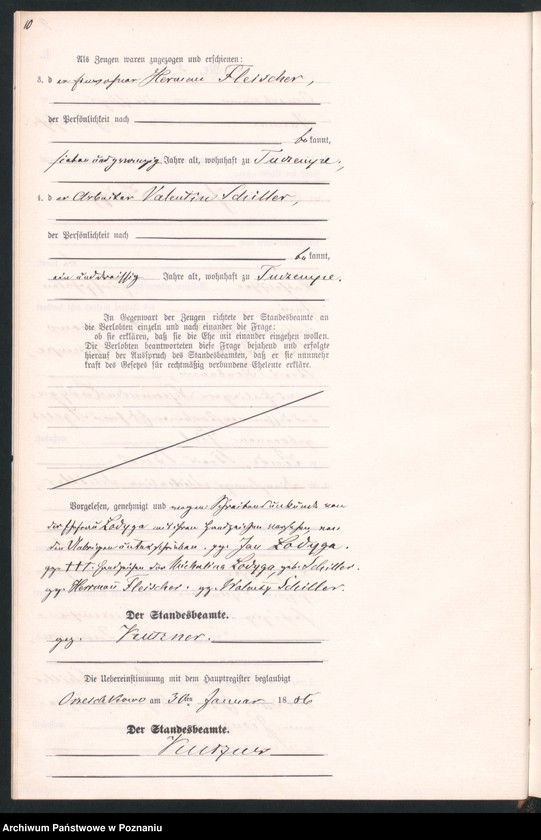 10
Als Zeugen waren zugezogen und erschienen:
3. d er Herman Fleischer,
der Persönlichkeit nach
be kannt,
sieben und zwanzig Jahre alt, wohnhaft zu Turzempe,
4. d er Arbeiter Valentin Schiller,
der Persönlichkeit nach
be kannt,
ein und dreissig Jahre alt, wohnhaft zu Turzempe.
In Gegenwart der Zeugen richtete der Standesbeamte an
die Verlobten einzeln und nach einander die Frage:
ob sie erklären, daß sie die Ehe mit einander eingehen wollen.
Die Verlobten beantworteten diese Frage bejahend und erfolgte
hierauf der Ausspruch des Standesbeamten, daß er sie nunmehr
kraft des Gesetzes für rechtmäßig verbundene Eheleute erkläre.
Vorgelesen, genehmigt und wegen Schreibensunkunde von
der Ehefrau Lodyga mit ihren Handzeichen versehen von
den Uebrigen unterschrieben. gez. Jan Lodyga.
gez. +++ Handzeichen der Michalina Lodyga, geb. Schiller.
gez. Herrman Fleischer. gez. Schiller.
Der Standesbeamte.
gez. Kutzner.
Die Uebereinstimmung mit dem Hauptregister beglaubigt
am 30ten Januar 18 86
Der Standesbeamte.
Kutzner
Archiwum Państwowe w Poznaniu